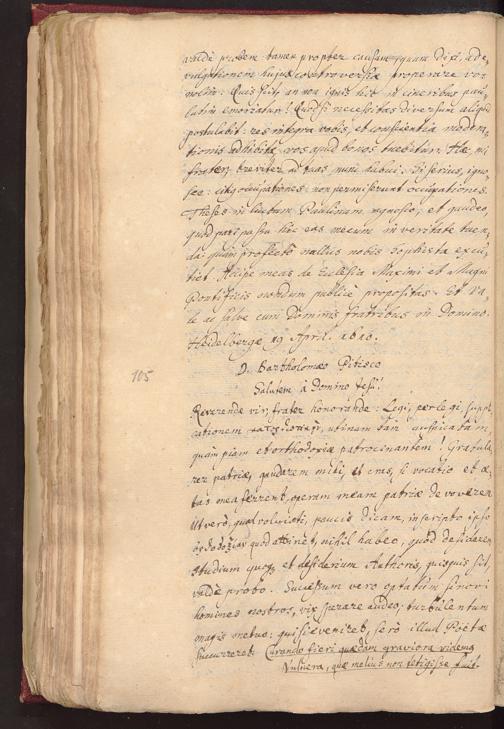 valdè probem: tamen propter causam quam dixi, ade,
vulgationem hujus controversiæ properare vos
nolim: Quis scit an non ignis hic in cineribus pau,
latim emoriatur? Quod si necessitas diversum aliquid
postulabit: res integra vobis, et conscientia modera,
tionis adhibitæ, vos apud bonos tuebitur. Hæc, mi
frater, breviter ad tuas nunc habui. Si serius, igno,
sce: citius occupationes non permiserunt occupationes.
Theses in luctum Paulinam agnosco, et gaudeo,
quod pari passu hic eas mecum in veritate tuen,
da: quam profectò nullus nobis Sophista excu,
tiet. Accipe meas de Ecclesia Maximi et Magni
Pontificis nondum publicè propositas. Et Va,
le ac salve cum Dominis fratribus in Domino.
Heidelbergæ 19 April.
105
D. Bartholomæo Pitisco
Salutem à Domino Jesu!
Reverende vir, frater honorande: Legi, perlegi, suppli
cationem utinam tam auspicatam
quam piam et orthodoxiæ patrocinantem! Gratula,
rer patriæ, gauderem mihi, et cras, si vocatio et æ,
tas mea ferrent, operam meam patriæ devoverem
Ut verò, quod voluisti, paucis dicam, in scripto ipso
ὀρθοδοξίαν quod attinet, nihil habeo, quod desiderem
Studium quoque et desiderium Authoris, quisquis sit,
valdè probo. Successum vero optatum si novi
homines nostros, vix sperare audeo: turbulentum
magis metuo: qui si eveniret, serò illud Poëtæ
succurreret: Curando fieri quædam graviora videmus
Vulnera, quæ melius non tetigisse fuit.